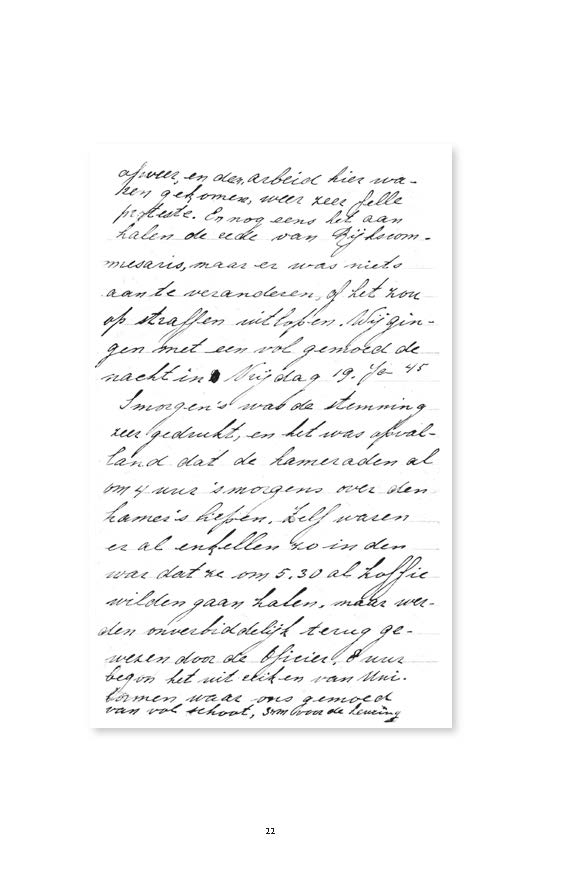 afweer, en den arbeid hier wa-
ren gekomen, weer zeer felle
proteste. En nog eens het aan
halen de eede van Rijkscom-
mesaris, maar er was niets
aan te veranderen, of het zou
op straffen uitlopen. Wij gin-
gen met een vol gemoed de
nacht in Vrijdag 19. 45
Smorgen's was de stemming
zeer gedrukt, en het was opval-
land dat de kameraden al
om 4 uur 's morgens over den
kamer's liepen. Zelf waren
er al enkellen zo in den
war dat ze om 5.30 al koffie
wilden gaan halen, maar wer-
den onverbiddelijk terug ge-
wezen door de Oficier. 8 uur
begon het uit reiken van Uni-
formen waar ons gemoed
van vol schoot, som voor de keuring
22